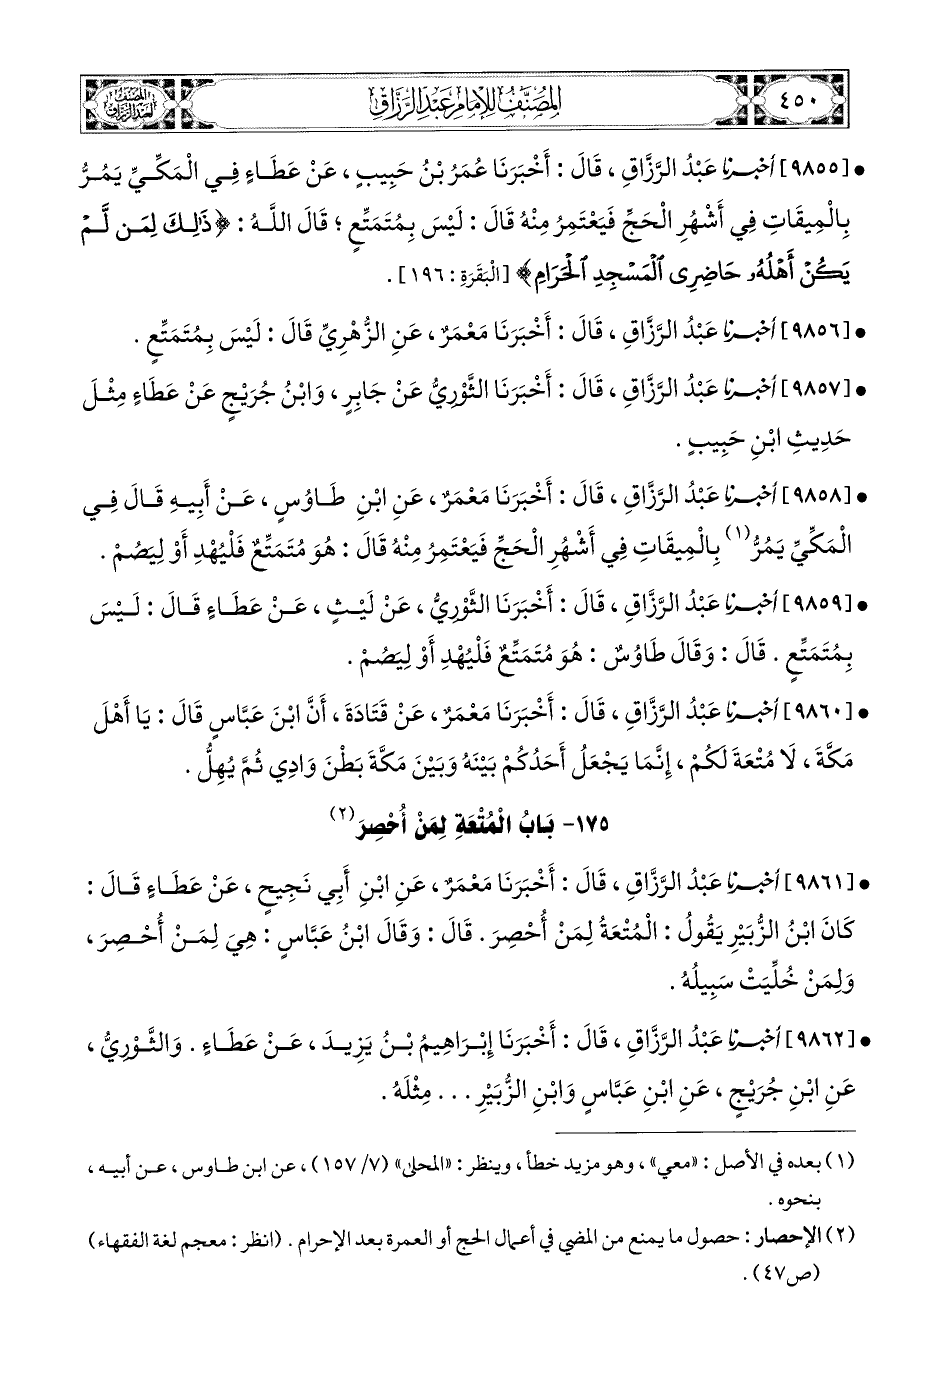 ٤٥٠
المصنف للإمام عبد الرزاق
المصنف
لعبد الرزاق
• [٩٨٥٥] أخبرنا عَبْدُ الرَّزَّاقِ ، قَالَ : أَخْبَرَنَا عُمَرُ بْنُ حَبِيبٍ ، عَنْ عَطَاءٍ فِي الْمَكِّيِّ يَمُرُّ
بِالْمِيقَاتِ فِي أَشْهُرِ الْحَجِّ فَيَعْتَمِرُ مِنْهُ قَالَ : لَيْسَ بِمُتَمَتِّعٍ ؛ قَالَ اللَّهُ : ﴿ذَٰلِكَ لِمَن لَّمْ
يَكُنْ أَهْلُهُۥ حَاضِرِى ٱلْمَسْجِدِ ٱلْحَرَامِ﴾ [الْبَقَرَةِ : ١٩٦] .
• [٩٨٥٦] أخبرنا عَبْدُ الرَّزَّاقِ ، قَالَ : أَخْبَرَنَا مَعْمَرٌ ، عَنِ الزُّهْرِيِّ قَالَ : لَيْسَ بِمُتَمَتِّعٍ .
• [٩٨٥٧] أخبرنا عَبْدُ الرَّزَّاقِ ، قَالَ : أَخْبَرَنَا الثَّوْرِيُّ عَنْ جَابِرٍ ، وَابْنُ جُرَيْجٍ عَنْ عَطَاءٍ مِثْلَ
حَدِيثِ ابْنِ حَبِيبٍ .
• [٩٨٥٨] أخبرنا عَبْدُ الرَّزَّاقِ ، قَالَ : أَخْبَرَنَا مَعْمَرٌ ، عَنِ ابْنِ طَاوُسٍ ، عَنْ أَبِيهِ قَالَ فِي
الْمَكِّيِّ يَمُرُّ(١) بِالْمِيقَاتِ فِي أَشْهُرِ الْحَجِّ فَيَعْتَمِرُ مِنْهُ قَالَ : هُوَ مُتَمَتِّعٌ فَلْيُهْدِ أَوْ لِيَصُمْ .
• [٩٨٥٩] أخبرنا عَبْدُ الرَّزَّاقِ ، قَالَ : أَخْبَرَنَا الثَّوْرِيُّ ، عَنْ لَيْثٍ ، عَنْ عَطَاءٍ قَالَ : لَيْسَ
بِمُتَمَتِّعٍ . قَالَ : وَقَالَ طَاوُسٌ : هُوَ مُتَمَتِّعٌ فَلْيُهْدِ أَوْ لِيَصُمْ .
• [٩٨٦٠] أخبرنا عَبْدُ الرَّزَّاقِ ، قَالَ : أَخْبَرَنَا مَعْمَرٌ ، عَنْ قَتَادَةَ ، أَنَّ ابْنَ عَبَّاسٍ قَالَ : يَا أَهْلَ
مَكَّةَ ، لَا مُتْعَةَ لَكُمْ ، إِنَّمَا يَجْعَلُ أَحَدُكُمْ بَيْنَهُ وَبَيْنَ مَكَّةَ بَطْنَ وَادِي ثُمَّ يُهِلُّ .
١٧٥- بَابُ الْمُتْعَةِ لِمَنْ أُحْصِرَ(٢)
• [٩٨٦١] أخبرنا عَبْدُ الرَّزَّاقِ ، قَالَ : أَخْبَرَنَا مَعْمَرٌ ، عَنِ ابْنِ أَبِي نَجِيحٍ ، عَنْ عَطَاءٍ قَالَ :
كَانَ ابْنُ الزُّبَيْرِ يَقُولُ : الْمُتْعَةُ لِمَنْ أُحْصِرَ . قَالَ : وَقَالَ ابْنُ عَبَّاسٍ : هِيَ لِمَنْ أُحْصِرَ ،
وَلِمَنْ خُلِّيَتْ سَبِيلُهُ .
• [٩٨٦٢] أخبرنا عَبْدُ الرَّزَّاقِ ، قَالَ : أَخْبَرَنَا إِبْرَاهِيمُ بْنُ يَزِيدَ ، عَنْ عَطَاءٍ . وَالثَّوْرِيُّ ،
عَنِ ابْنِ جُرَيْجٍ ، عَنِ ابْنِ عَبَّاسٍ وَابْنِ الزُّبَيْرِ . . . مِثْلَهُ .
(١) بعده في الأصل : «معي» ، وهو مزيد خطأ ، وينظر : «المحلى» (٧/ ١٥٧) ، عن ابن طاوس ، عن أبيه ،
بنحوه .
(٢) الإحصار : حصول ما يمنع من المضي في أعمال الحج أو العمرة بعد الإحرام . (انظر : معجم لغة الفقهاء)
(ص٤٧) .